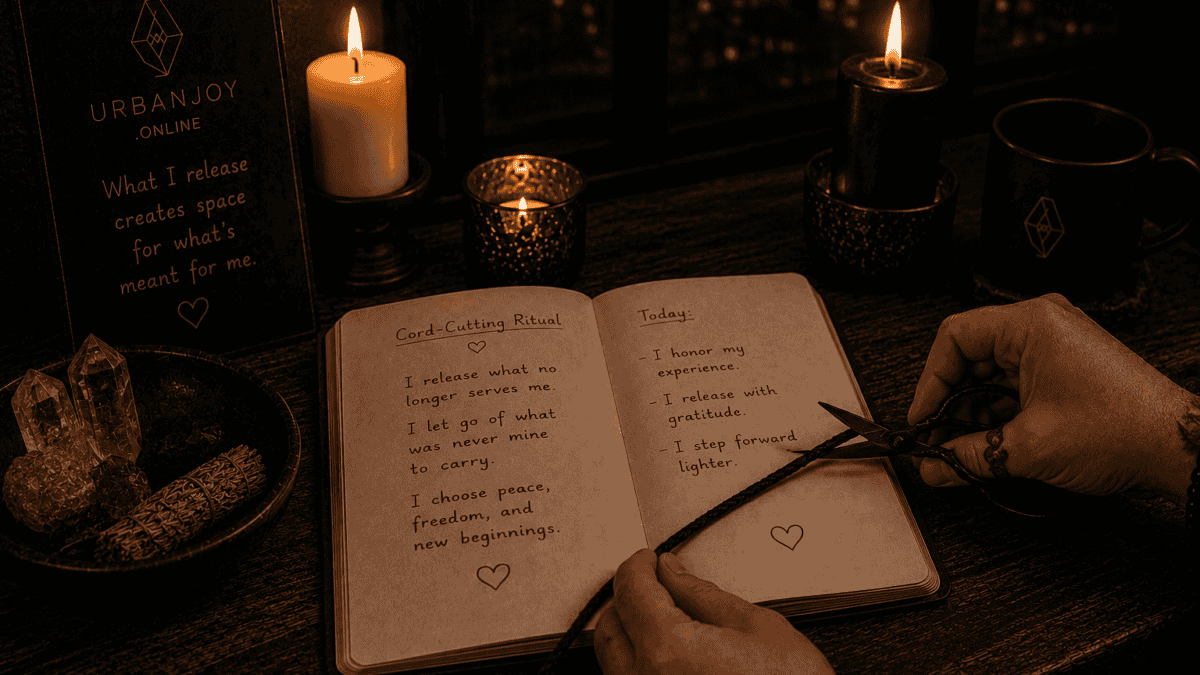 URBANJOY
.ONLINE
What I release
creates space
for what's
meant for me.
Cord-Cutting Ritual
I release what no
longer serves me.
I let go of what
was never mine
to carry.
I choose peace,
freedom, and
new beginnings.
Today:
- I honor my
experience.
- I release with
gratitude.
- I step forward
lighter.